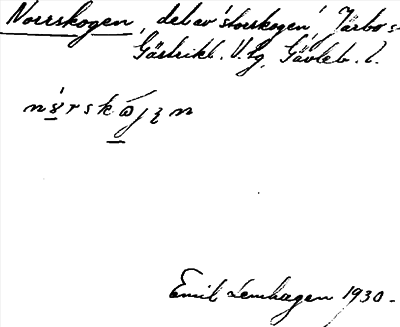 Norrskogen, del av 'storskogen', Järbo s
Gästrikl. V. tg, Gävleb. l.
Emil Lenhagen 1930.